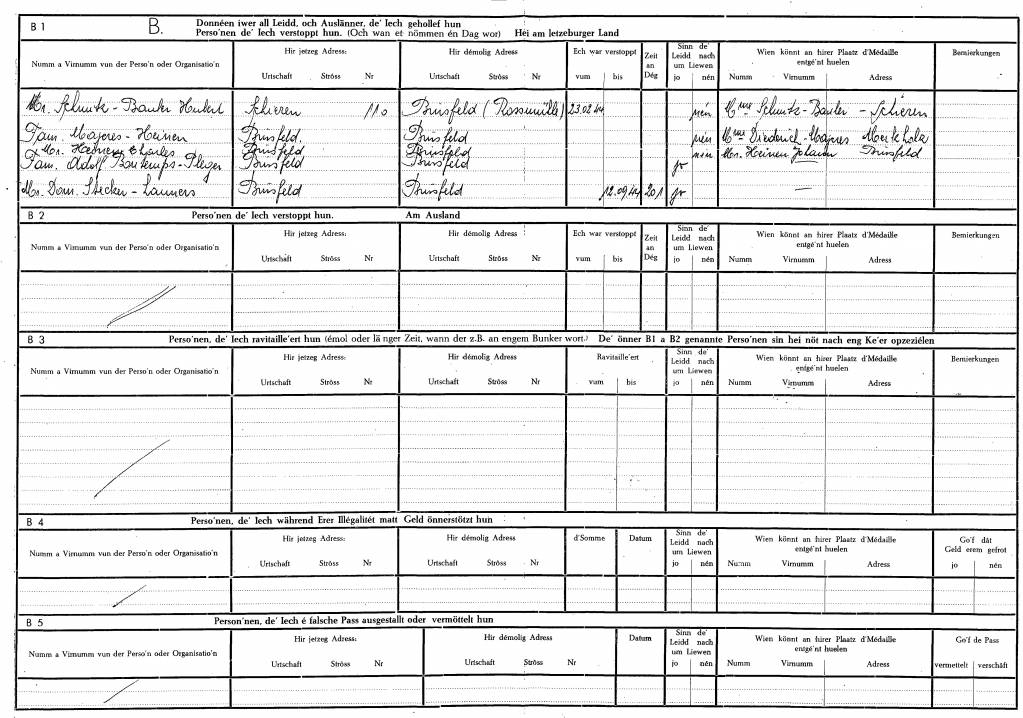 B 1 B. Donnéen iwer all Leidd, och Auslänner, de' Iech gehollef hun
Perso'nen de' Iech verstoppt hun. (Och wan et nömmen én Dag wor) Héi am letzeburger Land
Numm a Virnumm vun der Perso'n oder Organisatio'n
Hir jetzeg Adress:
Urtschaft Ströss Nr
Hir démolig Adress
Urtschaft Ströss Nr
Ech war verstoppt
vum bis
Zeit an Dég
Sinn de' Leidd nach um Liewen
jo nén
Wien könnt an hirer Plaatz d'Médaille entgé'nt huelen
Numm Virnumm Adress
Bemierkungen
Mr. Schmitz - Hubert Schieren 110 (Rossmühle) 23.02.44 nén Mme Schmitz- - Schieren
Fam. Majeres - Heinen nén Mme Diederich - Majeres
Mr. Heinen Charles nén Mr. Heinen Johann
Fam. Adolf Bontemps - Pleger jo
Mr. Dom. Stecker - Lanners 12.09.44 201 jo —
B 2 Perso'nen de' Iech verstoppt hun. Am Ausland
Numm a Virnumm vun der Perso'n oder Organisatio'n
Hir jetzeg Adress:
Urtschaft Ströss Nr
Hir démolig Adress
Urtschaft Ströss Nr
Ech war verstoppt
vum bis
Zeit an Dég
Sinn de' Leidd nach um Liewen
jo nén
Wien könnt an hirer Plaatz d'Médaille entgé'nt huelen
Numm Virnumm Adress
Bemierkungen
B 3 Perso'nen, de' Iech ravitaille'ert hun (émol oder länger Zeit, wann der z.B. an engem Bunker wort.) De' önner B1 a B2 genannte Perso'nen sin hei nöt nach eng Ke'er opzeziélen
Numm a Virnumm vun der Perso'n oder Organisatio'n
Hir jetzeg Adress:
Urtschaft Ströss Nr
Hir démolig Adress
Urtschaft Ströss Nr
Ravitaille'ert
vum bis
Sinn de' Leidd nach um Liewen
jo nén
Wien könnt an hirer Plaatz d'Médaille entgé'nt huelen
Numm Virnumm Adress
Bemierkungen
B 4 Perso'nen, de' Iech während Erer Illégalitét matt Geld önnerstötzt hun
Numm a Virnumm vun der Perso'n oder Organisatio'n
Hir jetzeg Adress:
Urtschaft Ströss Nr
Hir démolig Adress
Urtschaft Ströss Nr
d'Somme
Datum
Sinn de' Leidd nach um Liewen
jo nén
Wien könnt an hirer Plaatz d'Médaille entgé'nt huelen
Numm Virnumm Adress
Go'f dât Geld erem gefrot
jo nén
B 5 Person'nen, de' Iech é falsche Pass ausgestallt oder vermöttelt hun
Numm a Virnumm vun der Perso'n oder Organisatio'n
Hir jetzeg Adress:
Urtschaft Ströss Nr
Hir démolig Adress
Urtschaft Ströss Nr
Datum
Sinn de' Leidd nach um Liewen
jo nén
Wien könnt an hirer Plaatz d'Médaille entgé'nt huelen
Numm Virnumm Adress
Go'f de Pass
vermettelt verschâft